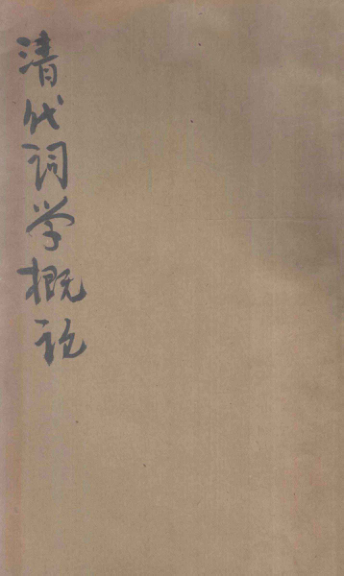 清代词学概论